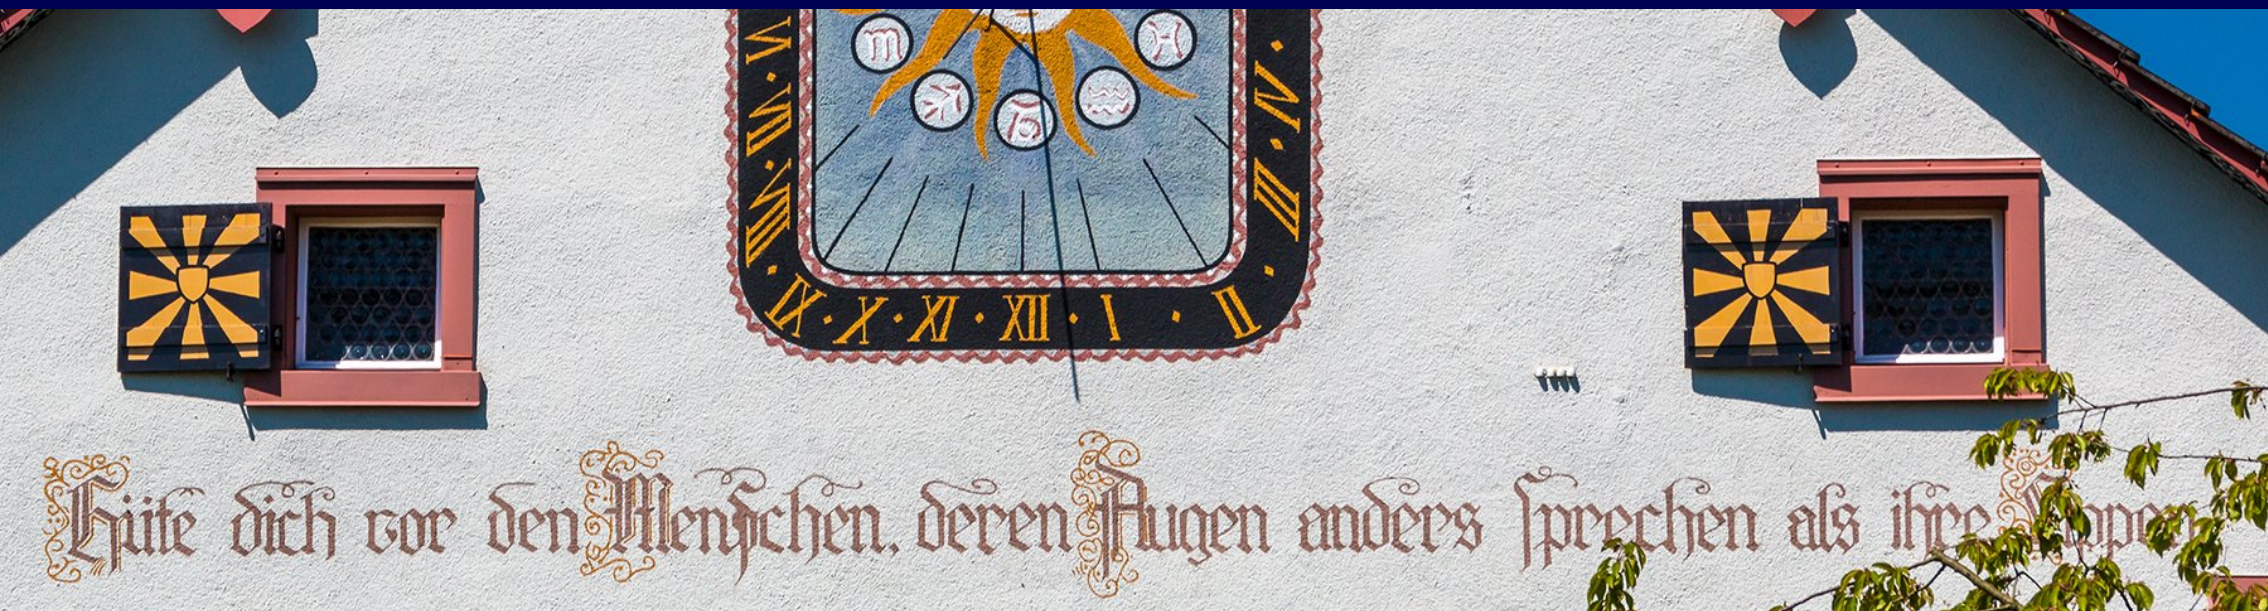 VI · VII · VIII · IX · X · XI · XII · I · II · III · IV ·
Hüte dich vor den Menschen, deren Augen anders sprechen als ihre